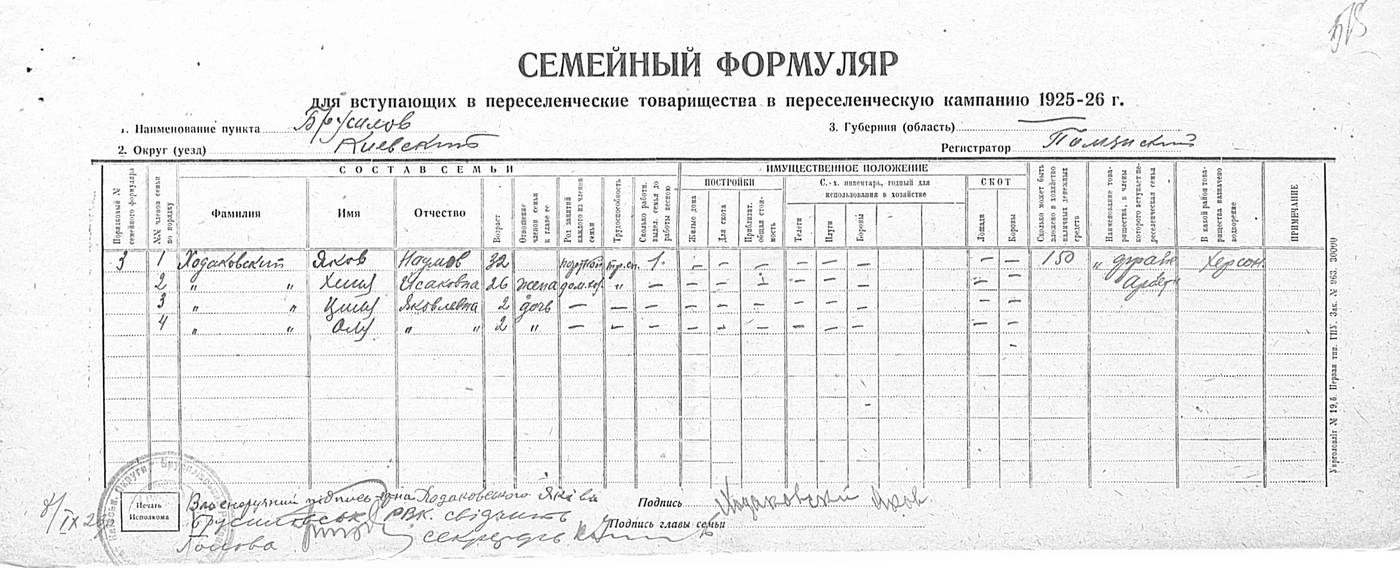 СЕМЕЙНЫЙ ФОРМУЛЯР
для вступающих в переселенческие товарищества в переселенческую кампанию 1925-26 г.
1. Наименование пункта Брусилов
3. Губерния (область)
2. Округ (уезд) Киевский
Регистратор
СОСТАВ СЕМЬИ
ИМУЩЕСТВЕННОЕ ПОЛОЖЕНИЕ
Порядковый № семейного формуляра
№№ членов семьи по порядку
Фамилия
Имя
Отчество
Возраст
Отношение членов семьи к главе ее
Род занятий каждого из членов семьи
Трудоспособность
Сколько работн. выдел. семья до работы весною
ПОСТРОЙКИ
Жилые дома
Для скота
Приблизит. общая стоимость
С.-х. инвентарь, годный для использования в хозяйстве
Телеги
Плуги
Бороны
СКОТ
Лошади
Коровы
Сколько может быть вложено в хозяйство наличных денежных средств
Наименование товарищества, в члены которого вступает переселенческая семья
В какой район товарищества назначено водворение
ПРИМЕЧАНИЕ
3 1 Ходаковский Яков Наумов 32 1. — — — — — — — — 150 Херсон.
2 " " Исаковна 26 жена — — — — — — — —
3 " " Яковлевна 2 дочь — — — — — — — — — — —
4 " " " " 2 " — — — — — — — — — — —
Печать Исполкома
Власноручний підпись Ходаковского Яківа
РВК. свідчить
Голова
Подпись Ходаковский Яков.
Подпись главы семьи
Зак. № 963. 30000